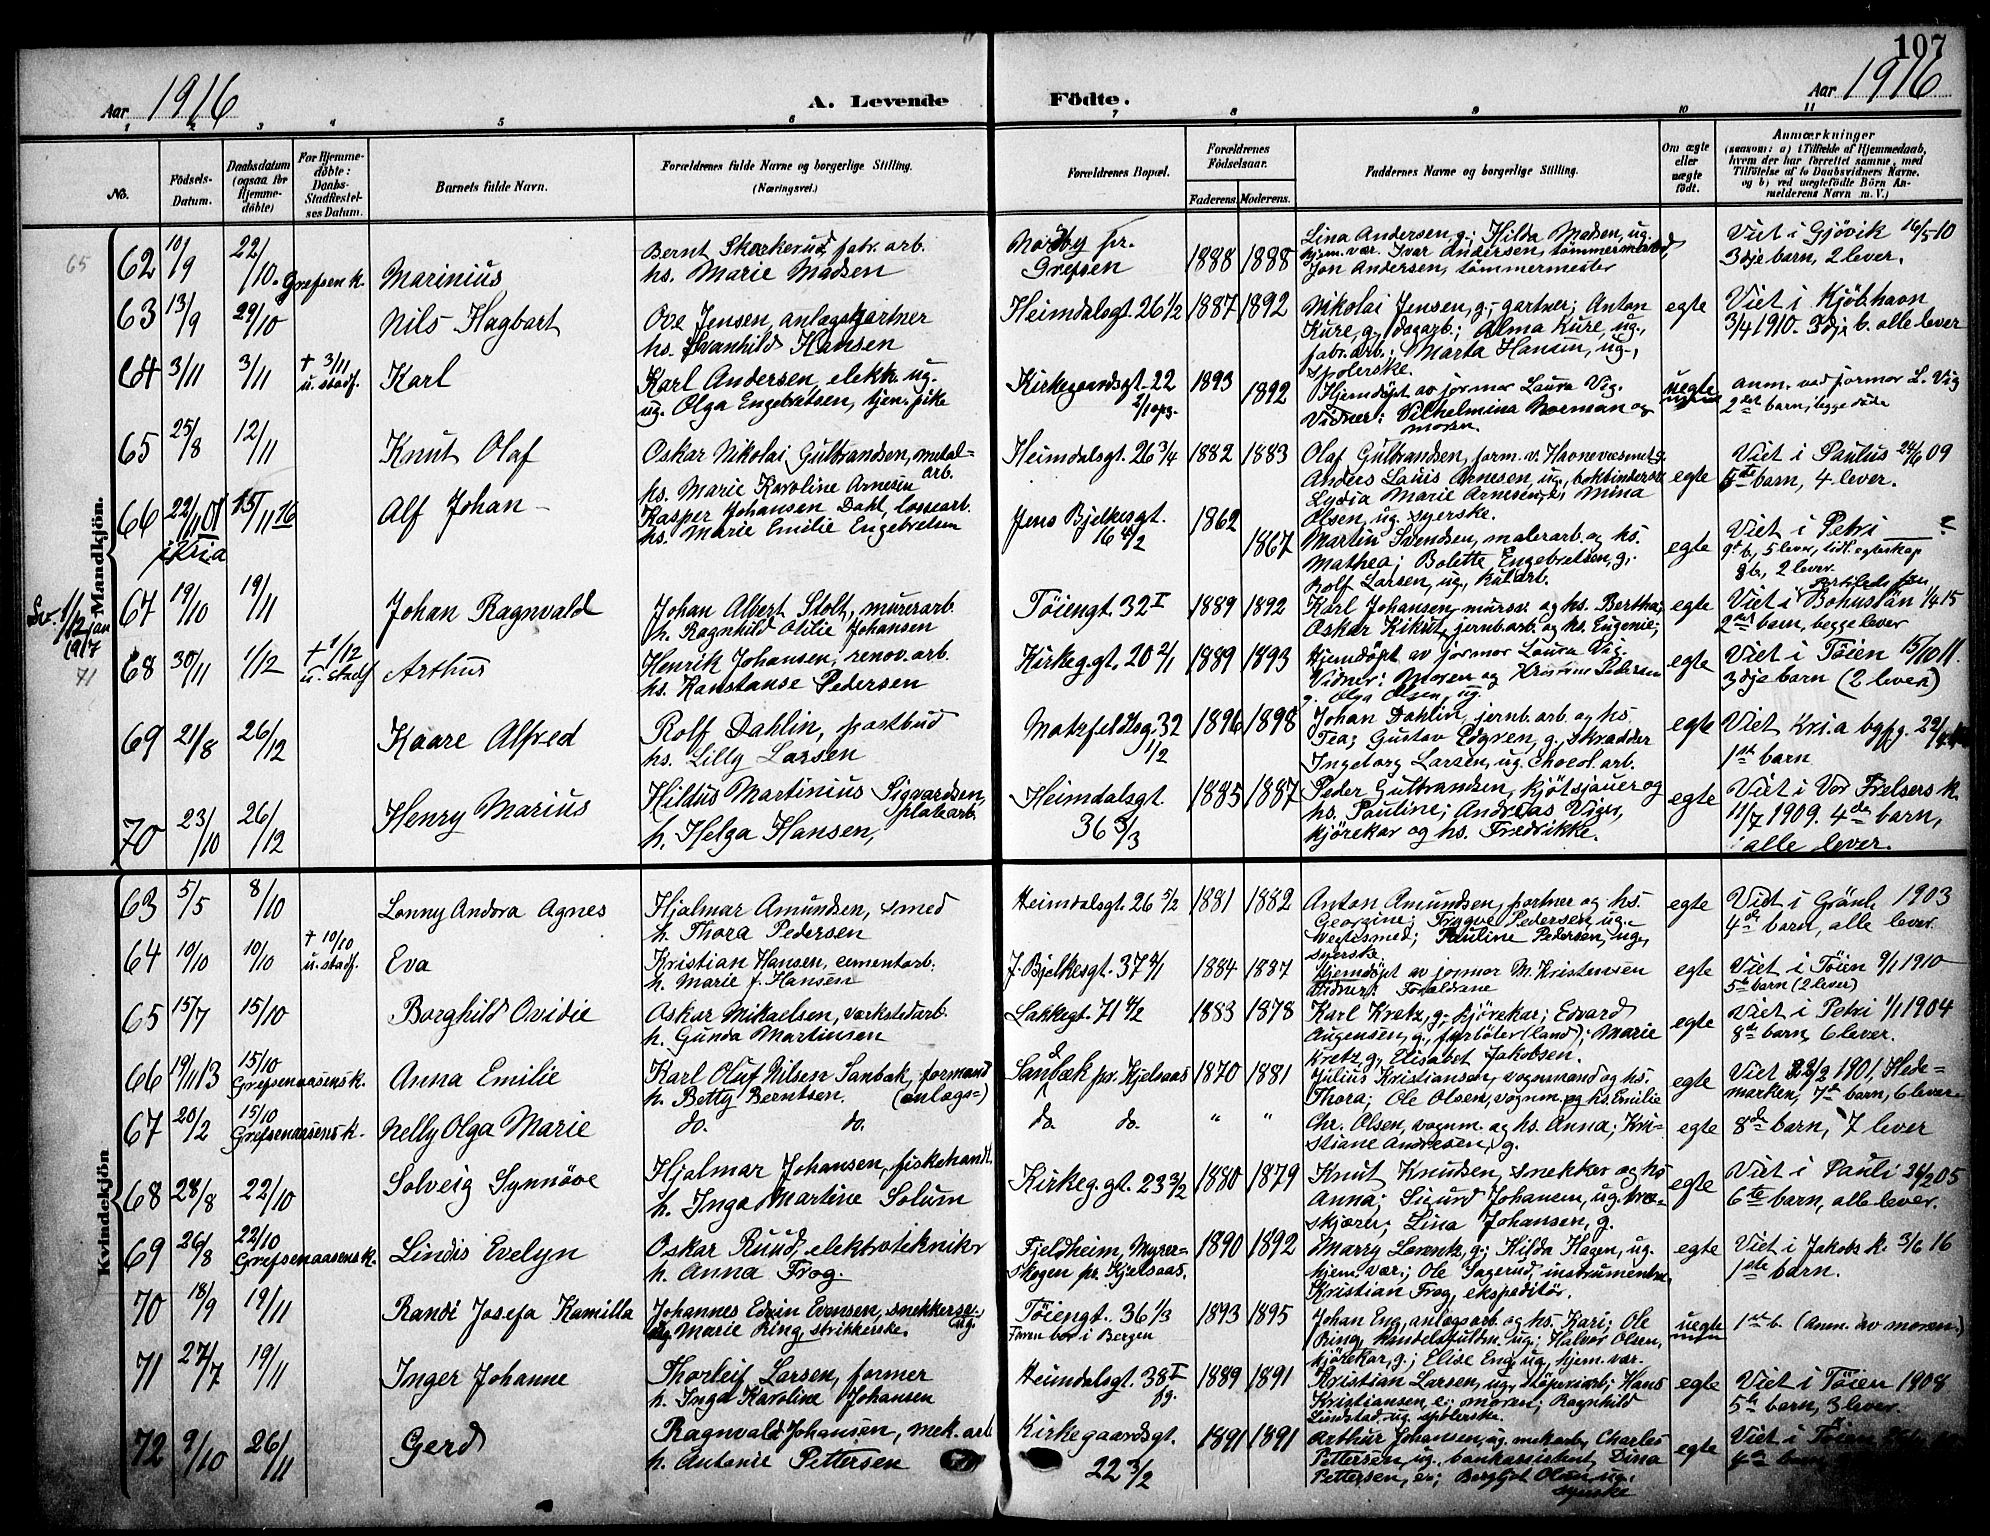 107
Aar 1916
A. Levende Födte.
Aar 1916
1 2 3 4 5 6 7 8 9 10 11
No.
Födsels-Datum.
Daabsdatum (ogsaa for Hjemme-döbte)
For Hjemme-döbte: Daabs-Stadfæstel-ses Datum.
Barnets fulde Navn.
Forældrenes fulde Navne og borgerlige Stilling. (Næringsvei.)
Forældrenes Bopæl.
Forældrenes Födselsaar.
Faderens. Moderens.
Faddernes Navne og borgerlige Stilling.
Om ægte eller uægte födt.
Anmærkninger
(saasom: a) i Tilfælde af Hjemmedaab, hvem der har forrettet samme, med Tilföielse af to Daabsvidners Navne. og b) ved uægtefödte Börn An-melderens Navn m. V.)
Mandkjön.
65
62 10/9 22/10. Grefsen k. Marinius
Bernt Skarkerud, fabr. arb.
hs. Marie Madsen
Nordby pr. Grefsen 1888 1888
Lina Andersen, g.; Hilda Madsen, ug.
hjem. vær. Ivar Andersen, tömmermand,
Jon Andersen, tömmermester
Viet i Gjövik 16/5 10
3dje barn, 2 lever.
63 13/9 29/10 Nils Hagbart
Ove Jensen, anlægsgartner
hs. Svanhild Hansen
Heimdalsgt. 26 1/2 1887 1892
Nikolai Jensen, g., gartner; Anton
Kure, g., dagarb.; Alma Kure, ug.,
fabr. arb.; Marta Hansen, ug.,
spolerske.
egte
Viet i Kjöbhavn
3/4 1910. 3dje b. alle lever
64 3/11 3/11 + 3/11 u. stadf. Karl
Karl Andersen, elektr. ug.
ug. Olga Engebretsen, tjen. pike
Kirkegaardsgt. 22 2/1 opg. 1893 1892
Hjemdöpt av jormor Laura Vig.
Vidner: Vilhelmina Norman og
moren.
uegte
anm. ved jormor L. Vig
2det barn; begge döde
65 25/8 12/11 Knut Olaf
Oskar Nikolai Gulbrandsen, metal-arb.
hs. Marie Karoline Arnesen
Heimdalsgt. 26 3/4 1882 1883
Olaf Gulbrandsen, form. v. Havnevæsenet, g.
Anders Louis Arnesen, ug., bokbindersv.
Lydia Marie Arnesen, g.; Mina
Olsen, ug. syerske.
egte
Viet i Paulus 24/6 09
5te barn, 4 lever.
66 22/11 01 i Kr.ia 15/11 16 Alf Johan
Kasper Johansen Dahl, lossearb.
hs. Marie Emilie Engebretsen
Jens Bjelkesgt. 16 4/2 1862 1867
Martin Svendsen, malerarb. og hs.
Mathea; Bolette Engebretsen, g.;
Rolf Larsen, ug., kularb.
egte
Viet i Petri ?
9de b., 5 lever, tidl. egteskap
8 b., 2 lever.
Sv. 1/12 jan 1917
67 19/10 19/11 Johan Ragnvald
Johan Albert Stolt, murerarb.
h. Ragnhild Otilie Johansen
Töiengt. 32 I 1889 1892
Karl Johansen, mursv. og hs. Bertha;
Oskar Kikut, jernb. arb. og hs. Eugenie;
egte
Viet i Bohuslän 1/4 15
2det barn, begge lever
71
68 30/11 1/12 + 1/12 u. stadf. Arthur
Henrik Johansen, renov. arb.
hs. Konstanse Pedersen
Kirkeg.gt. 20 2/1 1889 1893
Hjemdöpt av jormor Laura Vig.
Vidner: Moren og Kristine Pedersen
g. Olga Olsen, ug.
egte
Viet i Töien 15/10 11.
3dje barn (2 lever)
69 21/8 26/12 Kaare Alfred
Rolf Dahlin, postbud
hs. Lilly Larsen
Motzfeldtsg. 32 1/2 1896 1898
Johan Dahlin, jernb. arb. og hs.
Tea; Gustav Edgren, g., skrædder
Ingeborg Larsen, ug. Chocol. arb.
egte
Viet Kr.i.a bgfg. 22/
1ste barn
70 23/10 26/12 Henry Marius
Hildus Martinius Sigvardsen, platearb.
h. Helga Hansen,
Heimdalsgt. 36 3/3 1885 1887
Peder Gulbrandsen, kjötsjauer og
hs. Pauline; Andreas Viger,
kjörekar og hs. Fredrikke.
egte
Viet i Vor Frelsers k.
11/7 1909. 4de barn,
alle lever.
Kvindekjön
63 5/5 8/10 Lonny Andora Agnes
Hjalmar Amundsen, smed
h. Thora Pedersen
Heimdalsgt. 26 5/2 1881 1882
Anton Amundsen, portner og hs.
Georgine; Trygve Pedersen, ug.
vegtesmed; Pauline Pedersen, ug.,
syerske.
egte
Viet i Grönl. 1903
4de barn, alle lever.
64 10/10 10/10 + 10/10 u. stadf. Eva
Kristian Hansen, cementarb.
h. Marie f. Hansen
J. Bjelkesgt. 37 2/1 1884 1887
Hjemdöpt av jormor M. Kristensen
Vidner: Forældrene
egte
Viet i Töien 9/1 1910
5te barn (2 lever)
65 15/7 15/10 Borghild Ovidie
Oskar Mikaelsen, verkstedarb.
h. Gunda Martinsen
Lakkegt. 71 4/2 1883 1878
Karl Kretz, g. kjörekar; Edvard
Augensen, g., fyrböter (land); Marie
Kretz, g., Elisabet Jakobsen.
egte
Viet i Petri 1/1 1904
8de barn, 6 lever.
66 19/11 13 15/10 Grefsenaasens k. Anna Emilie
Karl Oluf Nilsen Sanbæk, formand (anlægs-)
h. Betty Berntsen.
Sandbæk pr. Kjelsaas 1870 1881
Julius Kristiansen, vognmand og hs.
Thora; Ole Olsen, vognm. og hs. Emilie
egte
Viet 22/2 1901, Hede-
marken, 7de barn, 6 lever.
67 20/2 15/10 Grefsenaasens k. Nelly Olga Marie
do. do.
do do. " "
Chr. Olsen, vognm. og hs. Anna; Kri-
stiane Andresen, g.
egte
8de barn, 7 lever
68 28/8 22/10 Solveig Synnöve
Hjalmar Johansen, fiskehandl.
h. Inga Martine Solum
Kirkeg.gt. 23 3/2 1880 1879
Knut Knudsen, snekker og hs
Anna; Sigurd Johansen, ug. træ-
skjærer; Lina Johansen, g.
egte
Viet i Pauli 26/2 05
6te barn, alle lever.
69 26/8 22/10 Grefsenaasens k. Lindis Evelyn
Oskar Ruud, elektrotekniker
h. Anna Frog.
Fjeldheim, Myrer-
skogen pr. Kjelsaas. 1890 1892
Marry Lorentz, g.; Hilda Hagen, ug.
hjem. vær.; Ole Sagerud, instrumentm.
Kristian Frog, ekspeditör.
egte
Viet i Jakobs k. 3/6 16
1ste barn.
70 18/9 19/11 Randi Josefa Kamilla
Johannes Edvin Evensen, snekkersv. ug.
ug. Marie Ring, strikkerske.
Töiengt. 36 1/3
Faren bor i Bergen 1893 1895
Johan Eng, anlægsarb. og hs. Kari; Ole
Ring, handelsfuldm. ug.; Halvor Olsen,
kjörekar, g.; Elise Eng, ug., hjem. vær.
uegte
1ste b. (Anm. av moren.)
71 27/7 19/11 Inger Johanne
Thorleif Larsen, former
h. Inga Karoline Johansen
Heimdalsgt. 38 I fg. 1889 1891
Kristian Larsen, ug., stöperiarb; Hans
Kristiansen, e; moren; Ragnhild
Lindstad, ug. spolerske.
egte
Viet i Töien 1908
5te barn, 3 lever.
72 9/10 26/11 Gerd
Ragnvald Johansen, mek. arb.
h. Antonie Pettersen
Kirkegaardsgt. 22 3/2 1891 1891
Arthur Johansen, ug. mek arb, Charles
Pettersen, ug., bankassistent, Dina
Pettersen, e.; Bergljot Olsen, ug.
syerske
egte
Viet i Töien
4de barn